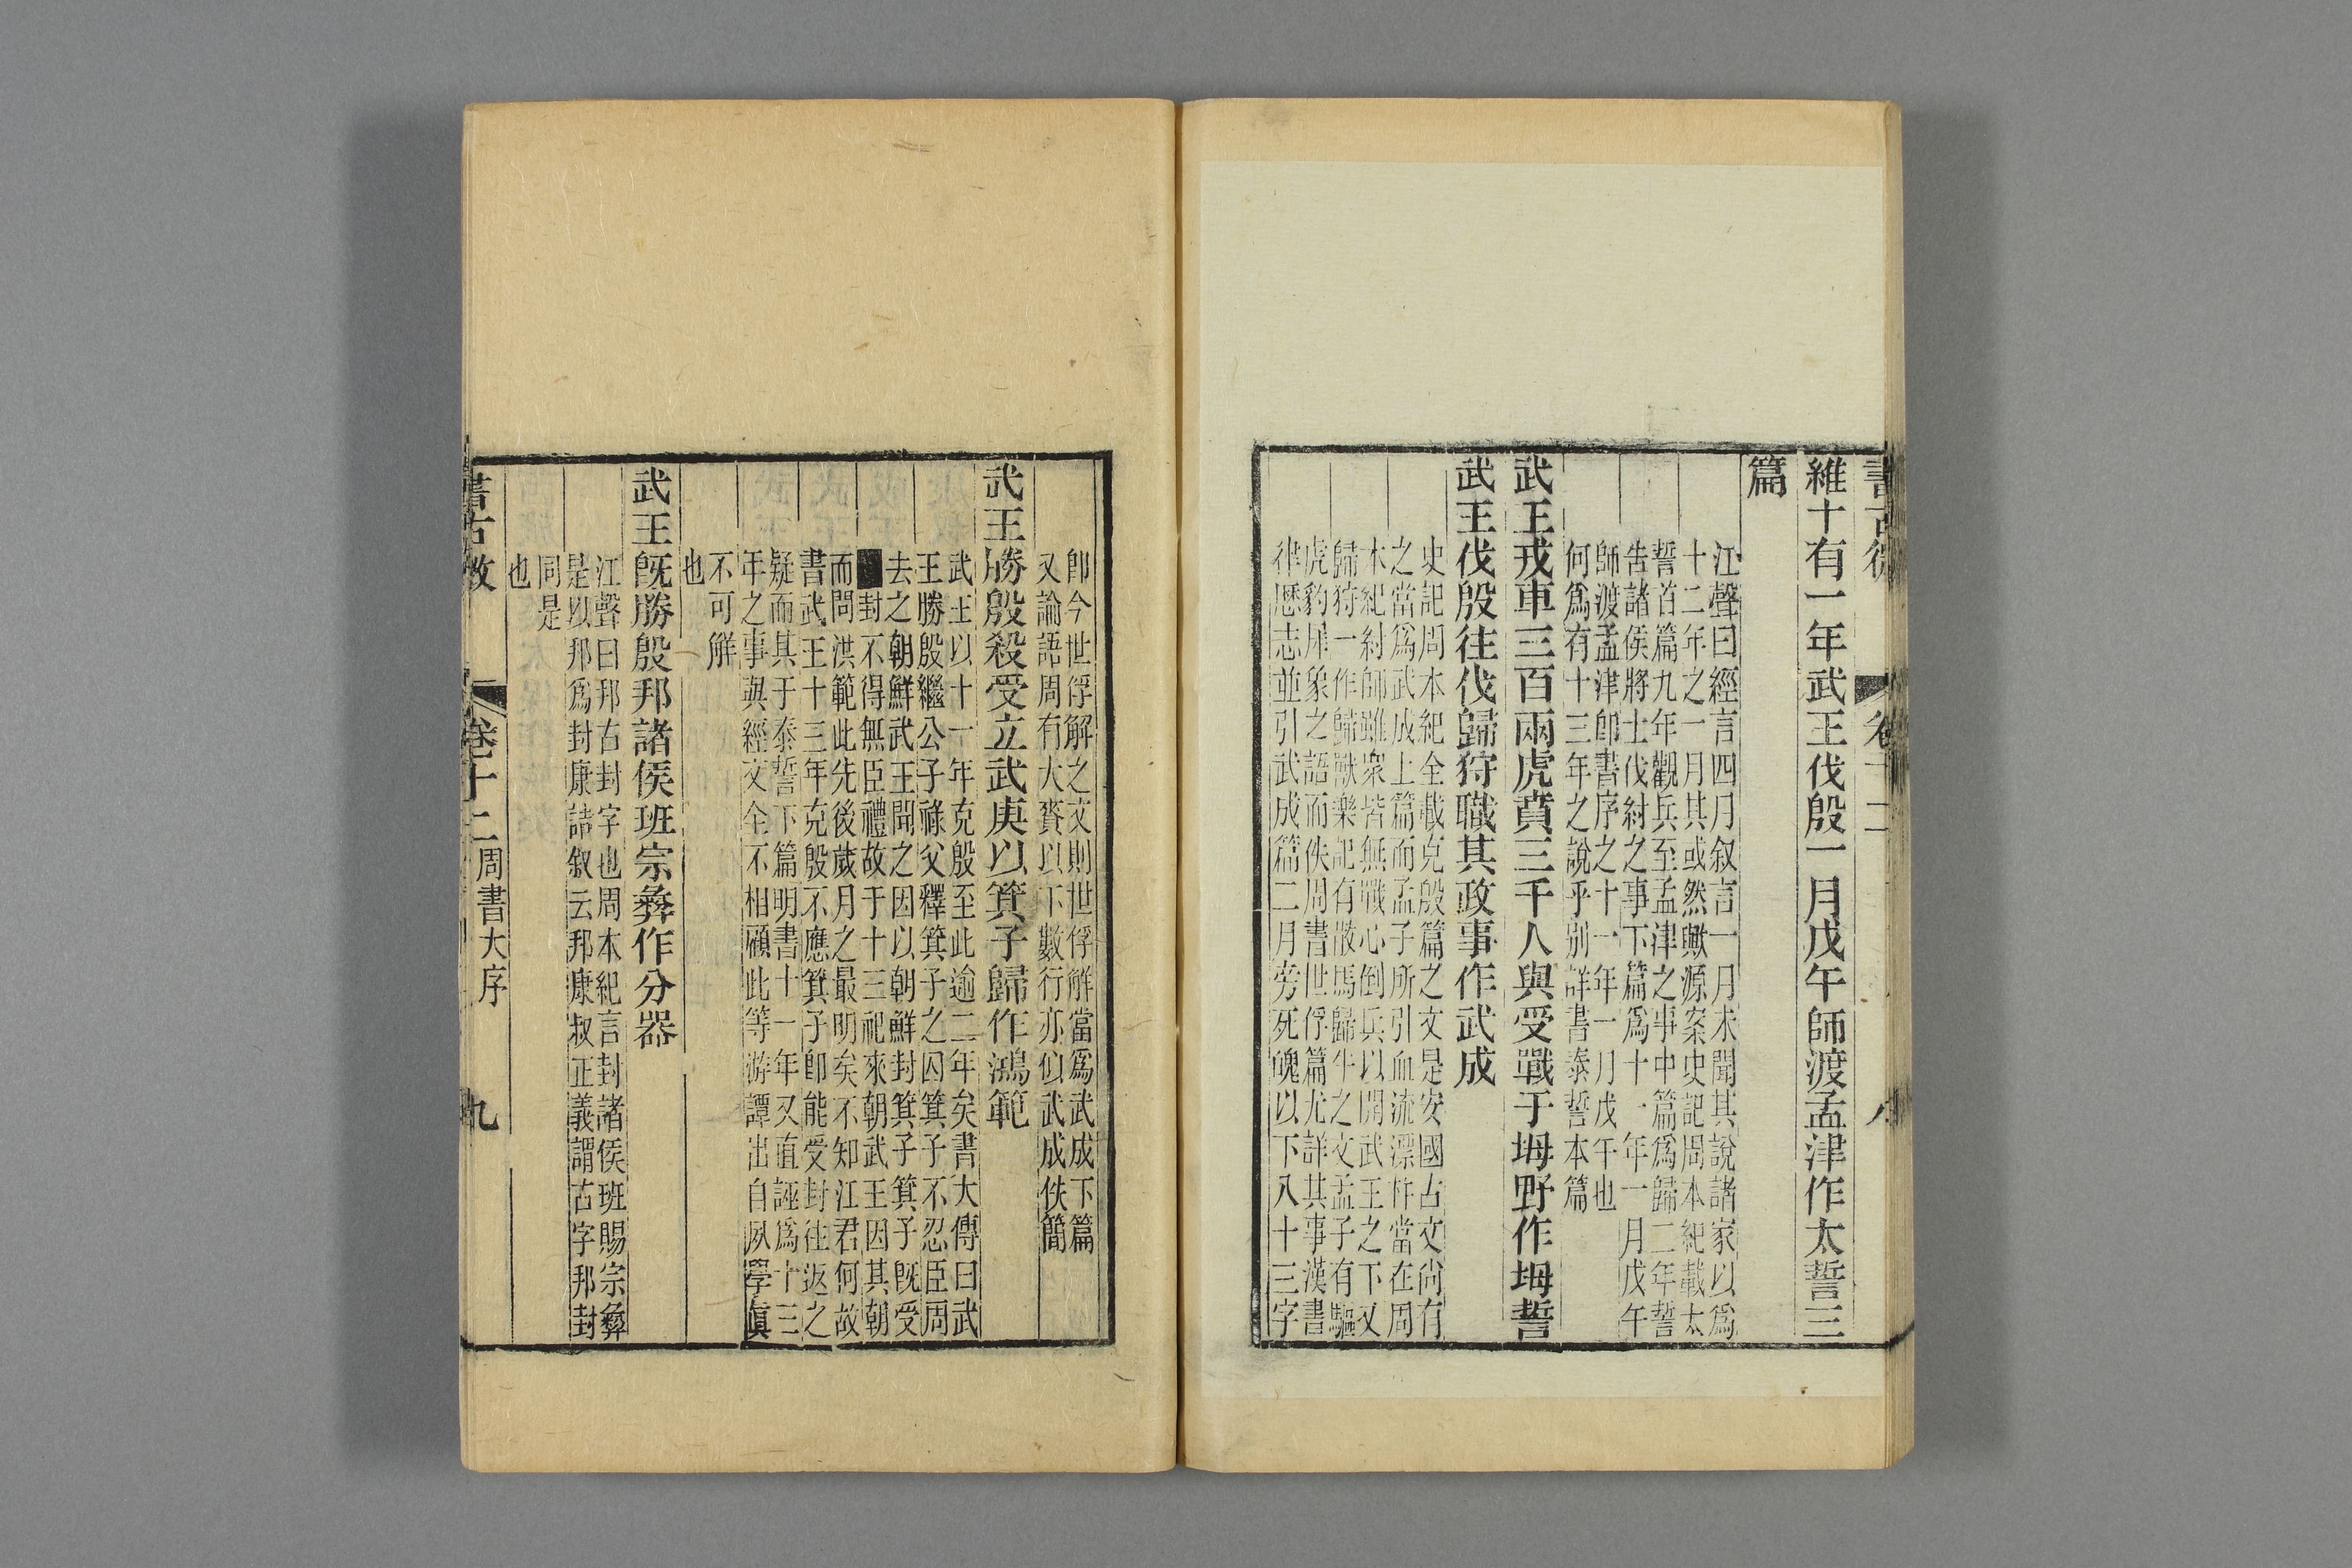 書古微 卷十二 八
維十有一年武王伐殷一月戊午師渡孟津作太誓三
篇
江聲曰經言四月叙言一月未聞其說諸家以爲
十二年之一月其或然歟源案史記周本紀載太
誓首篇九年觀兵至孟津之事中篇爲歸二年誓
告諸侯將士伐紂之事下篇爲十一年一月戊午
師渡孟津卽書序之十一年一月戊午也
何爲有十三年之說乎别詳書泰誓本篇
武王戎車三百兩虎賁三千人與受戰于坶野作坶誓
武王伐殷往伐歸狩職其政事作武成
史記周本紀全載克殷篇之文是安國古文尚有
之當爲武成上篇而孟子所引血流漂杵當在周
本紀紂師雖衆皆無戰心倒兵以開武王之下又
歸狩一作歸獸樂記有散馬歸牛之文孟子有驅
虎豹犀象之語而佚周書世俘篇尤詳其事漢書
律厯志並引武成篇二月旁死魄以下八十三字
卽今世俘解之文則世俘解當爲武成下篇
又論語周有大賚以下數行亦似武成佚簡
武王勝殷殺受立武庚以箕子歸作鴻範
武王以十一年克殷至此逾二年矣書大傳曰武
王勝殷繼公子祿父釋箕子之囚箕子不忍臣周
去之朝鮮武王聞之因以朝鮮封箕子箕子旣受
封不得無臣禮故于十三祀來朝武王因其朝
而問洪範此先後歲月之最明矣不知江君何故
書武王十三年克殷不應箕子卽能受封往返之
疑而其于泰誓下篇明書十一年又直誣爲十三
年之事與經文全不相顧此等游譚出自夙學眞
不可解
也
武王旣勝殷邦諸侯班宗彝作分器
江聲曰邦古封字也周本紀言封諸侯班賜宗彝
是以邦爲封康誥叙云邦康叔正義謂古字邦封
同是
也
書古微 卷十二 周書大序 九